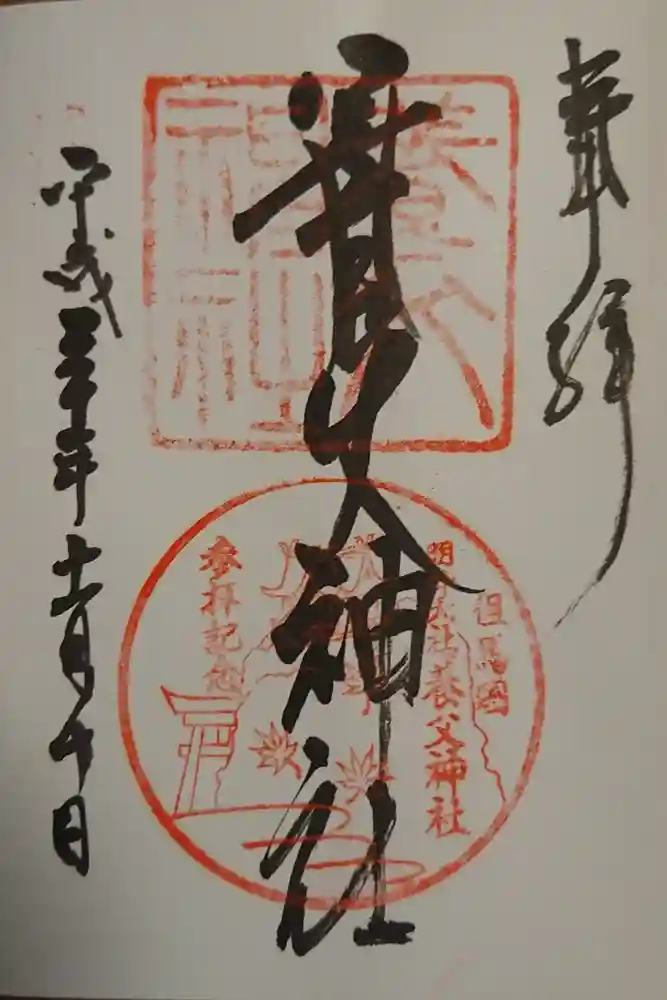 奉拝
養父神社
養父神社
但馬國
明神大社 養父神社
参拝記念
平成三十年十一月十日